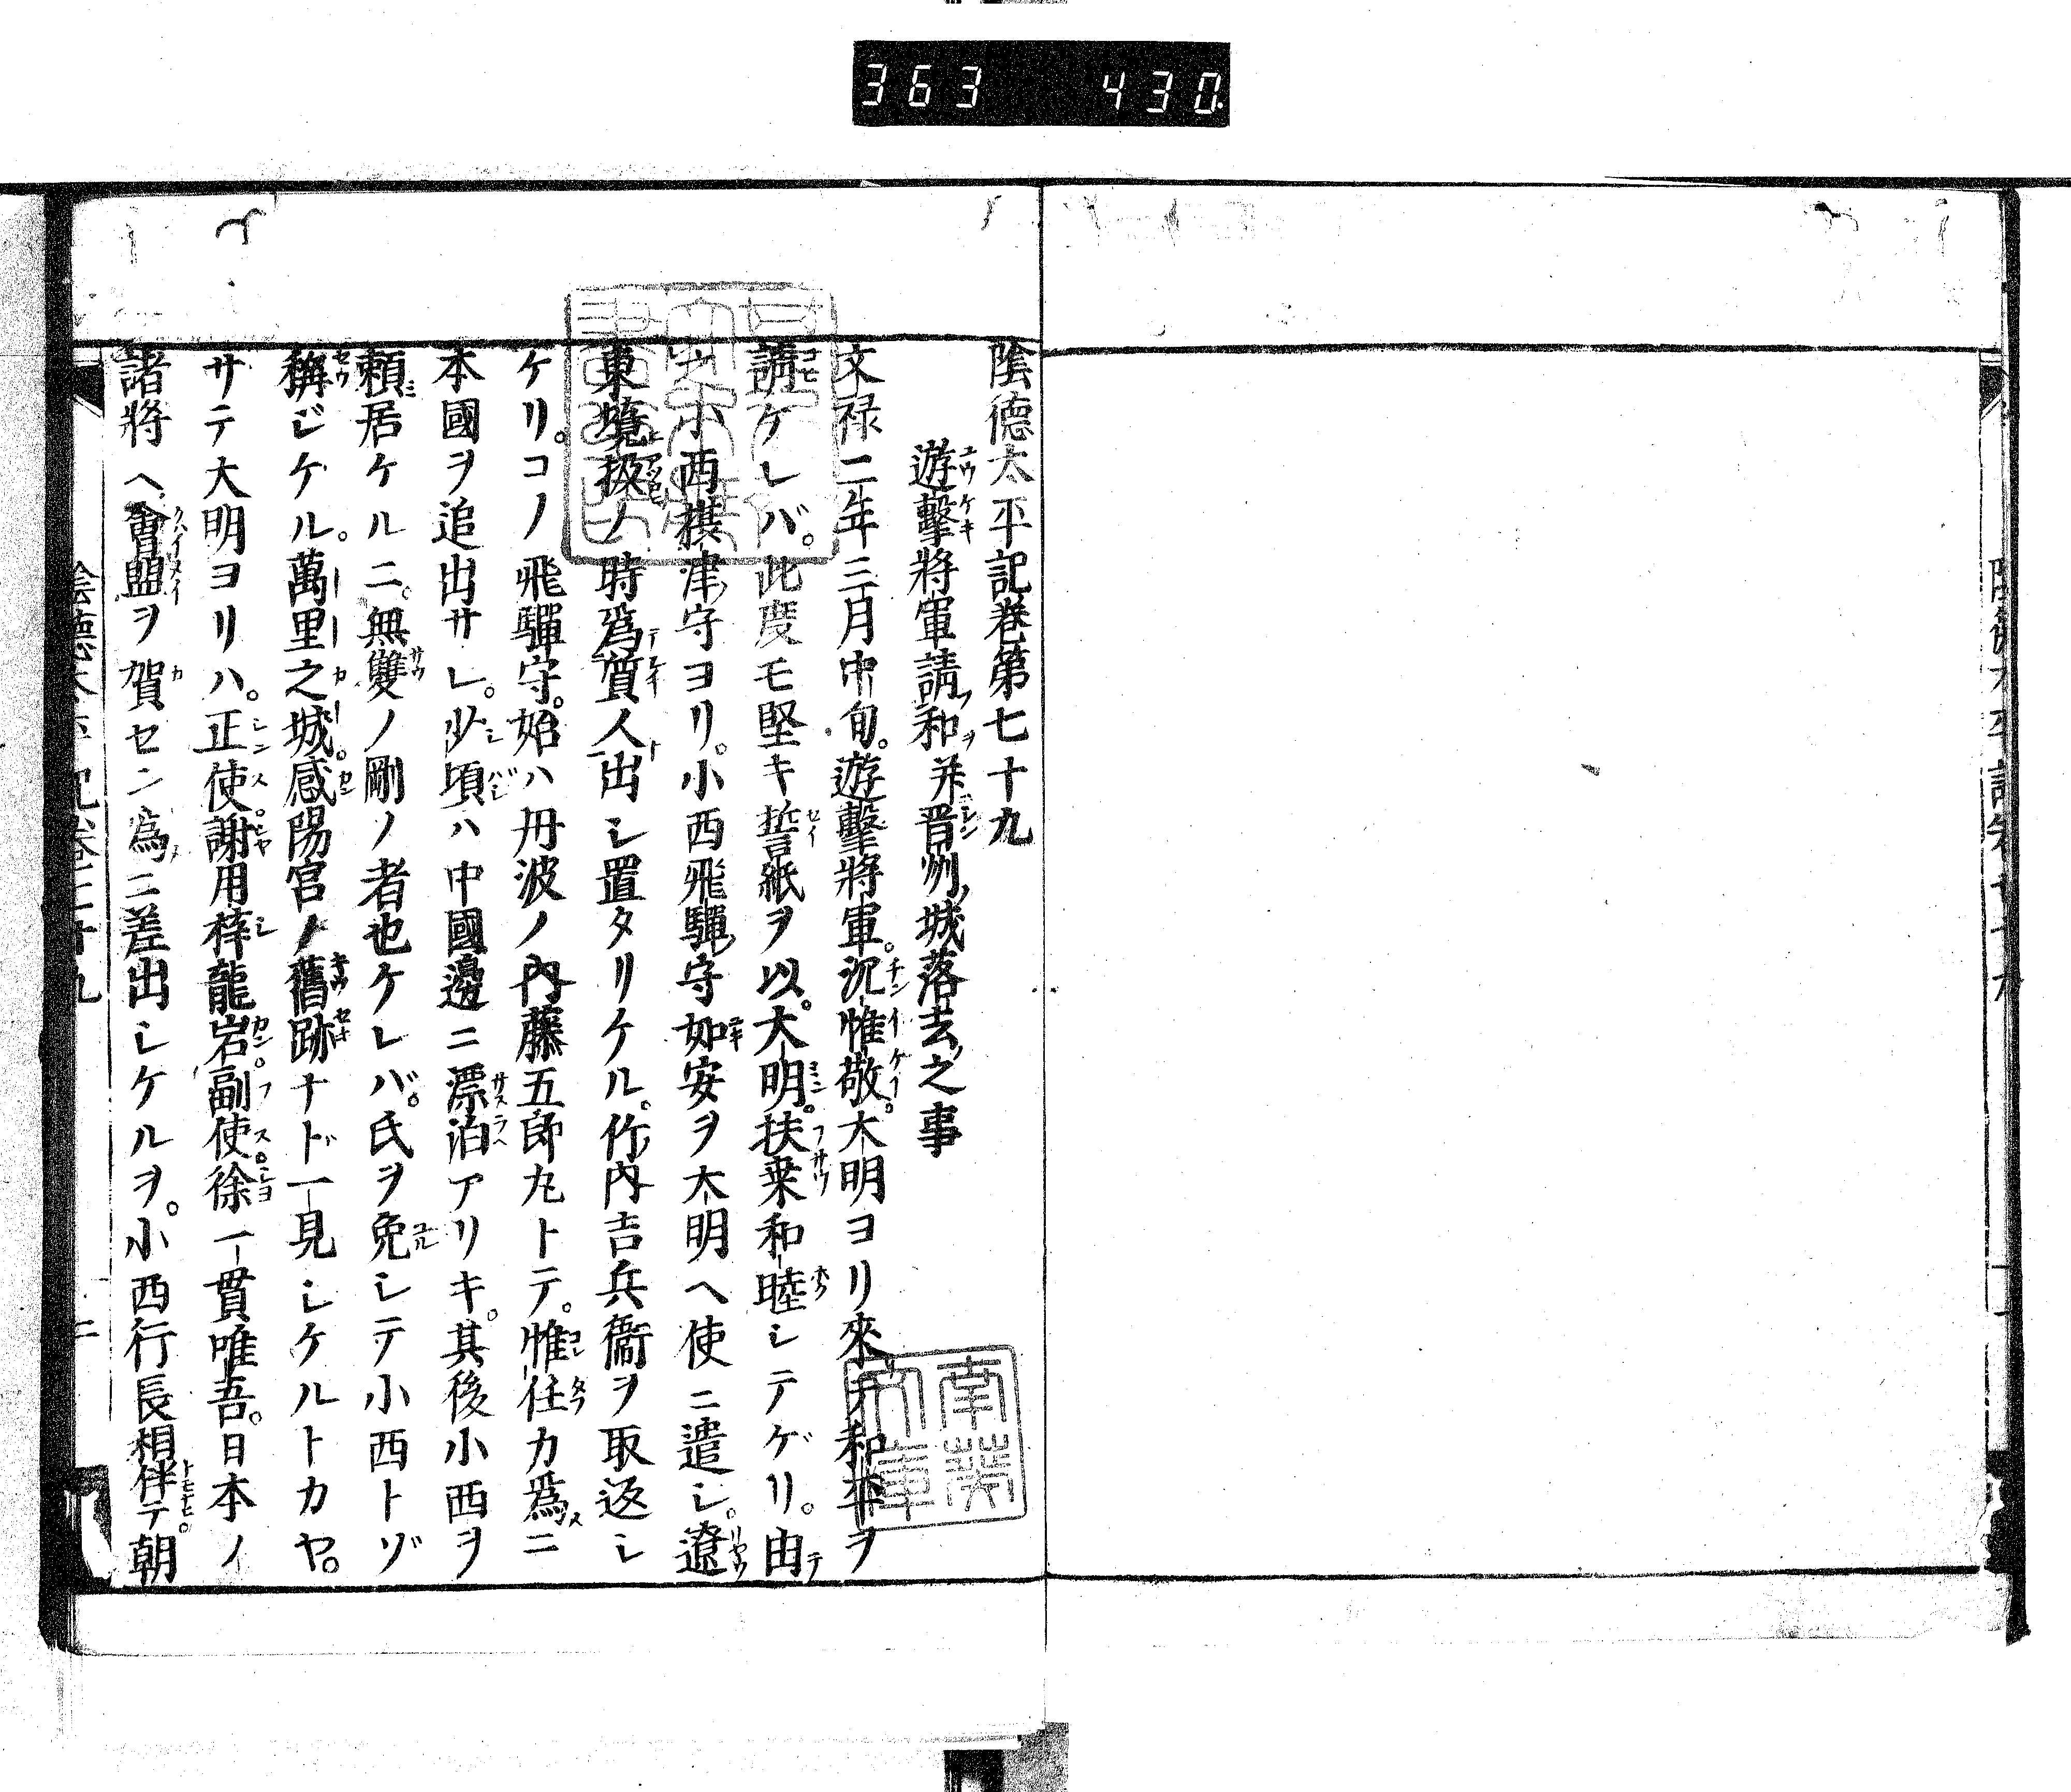 363 430
陰德太平記卷第七十九
遊擊將軍請和并晋州城落去之事
文禄二年三月中旬。遊擊將軍。沉惟敬。大明ヨリ來テ和平ヲ
請ケレバ。此度モ堅キ誓紙ヲ以。大明。扶桒和睦シテゲリ。由
之小西摂津守ヨリ。小西飛騨守如安ヲ大明ヘ使ニ遣シ。遼
東境扱ノ時爲質人出シ置タリケル。竹内吉兵衞ヲ取返シ
ケリ。コノ飛騨守。始ハ丹波ノ内藤五郎丸トテ。惟任カ爲ニ
本國ヲ追出サレ。少頃ハ中國邊ニ漂泊アリキ。其後小西ヲ
頼居ケルニ。無雙ノ剛ノ者也ケレバ。氏ヲ免シテ小西トゾ
稱ジケル。萬里之城。感陽宮ノ舊跡ナド一見シケルトカヤ。
サテ大明ヨリハ。正使。謝用梓龍岩。副使。徐一貫唯吾。日本ノ
諸將ヘ會盟ヲ賀セン爲ニ差出シケルヲ。小西行長相伴テ。朝
南葵文庫